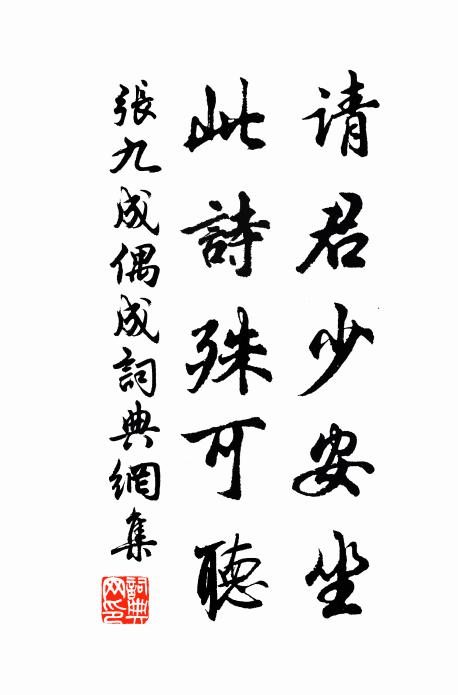 请君少安坐
此詩殊可聽
張九成偶成詞典網集
詞典網印